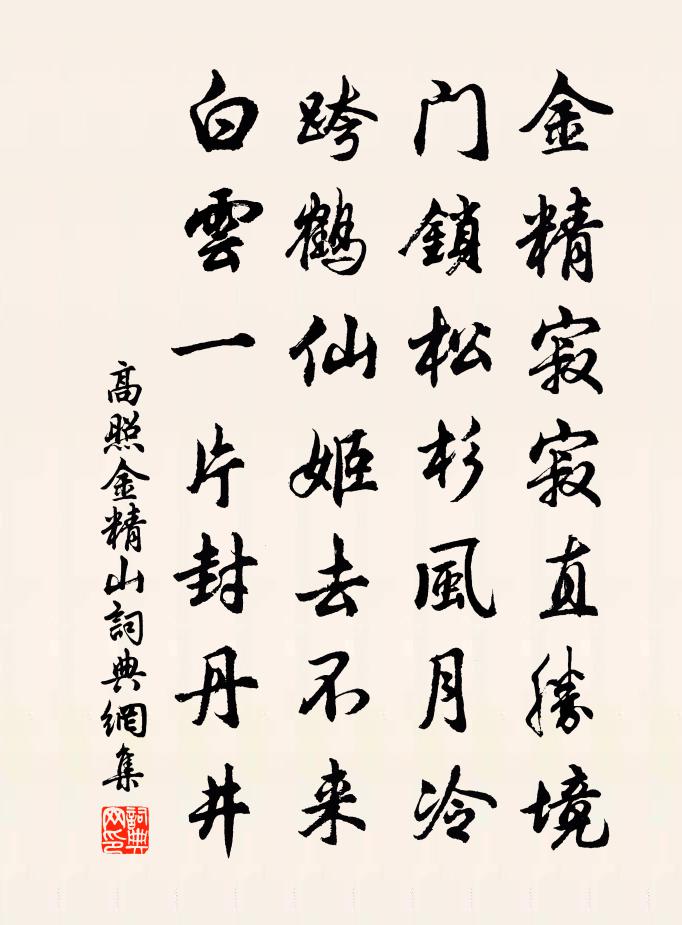 金精寂寂直勝境
门鎖松杉風月冷
跨鶴仙姬去不来
白雲一片封丹井
高照金精山詞典網集
詞典网印